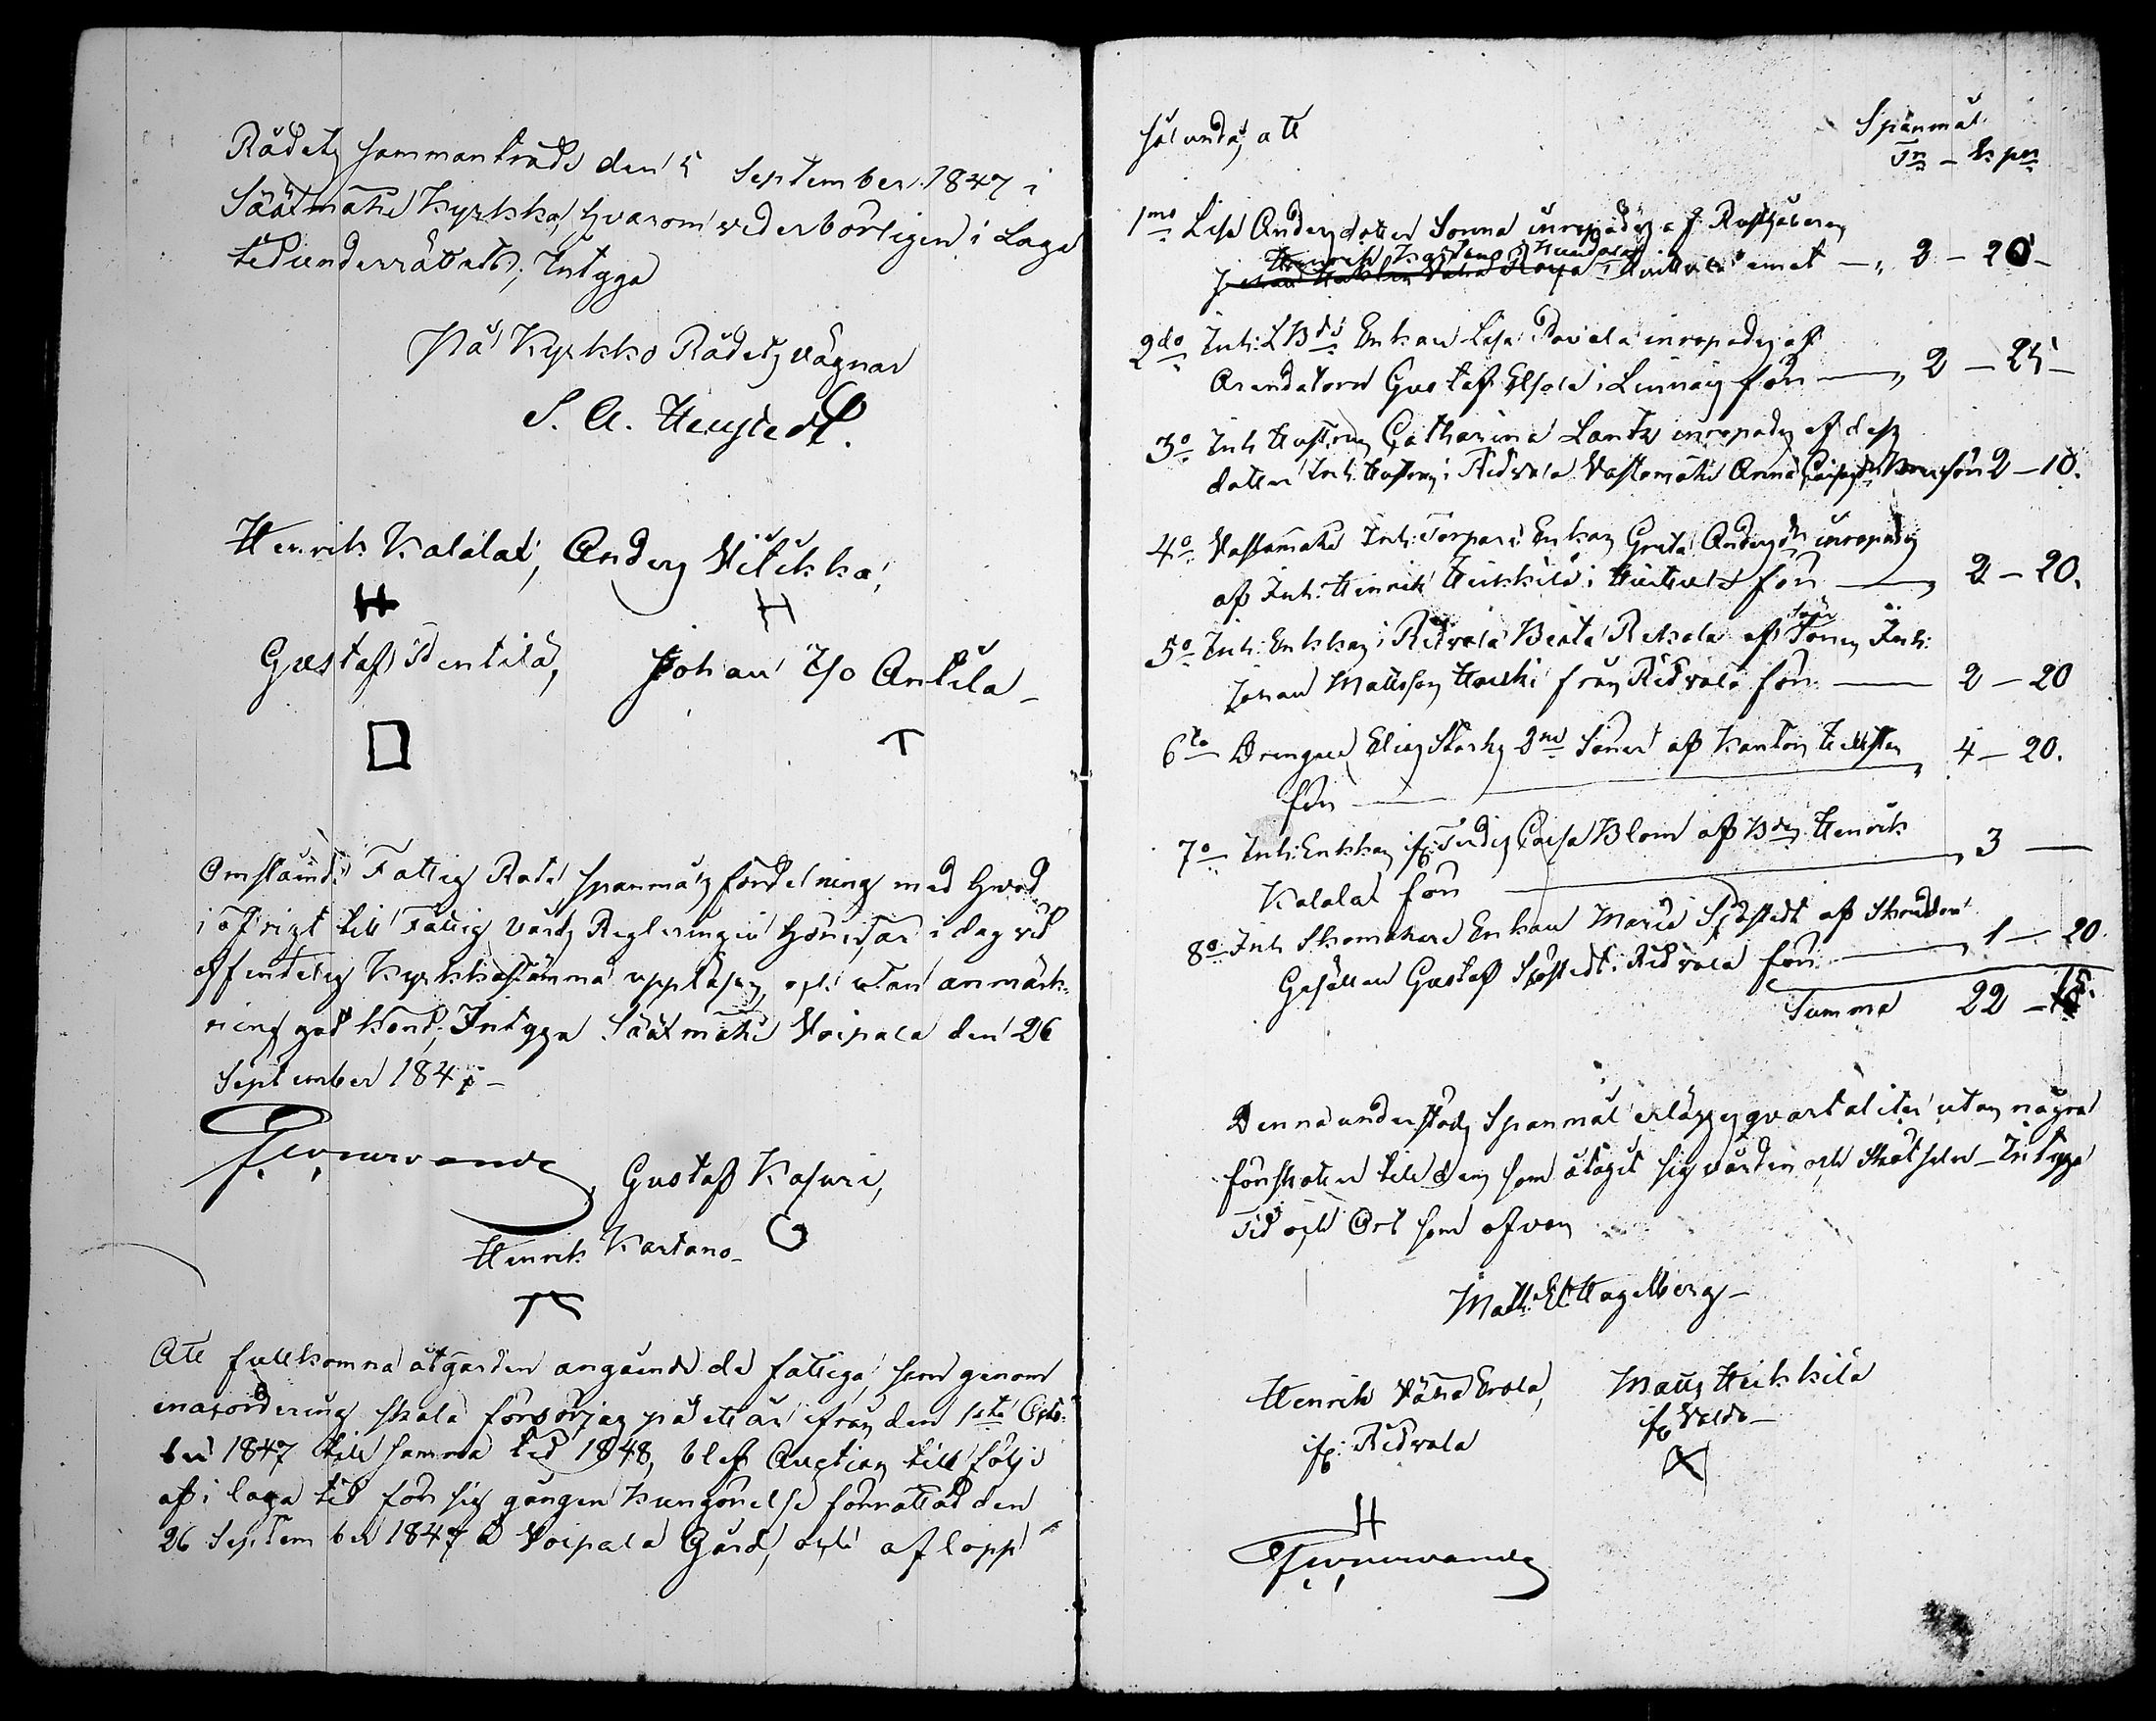 Rådets sammanträde den 5 September 1847 i
Säätmäki Kyrkka, hvarom vederbörligen i Laga
tid underrättats; Intyga
På Kyrkko Rådets vägnar
Henrik Kalalat, Anders
H H
Gustaf Pentilä, Johan Y/o Antila
T
Omstående Fattig Rote Spanmåls fördelning med hvad
i öfrigt till Fattig Vårds Regleringen hörer, är i dag vid
offentelig Kyrkkostämma uppläsen och utan anmärk-
ning god känd; Intyga Säätmäki Voipala den 26
September 1847
Gustaf Kasuri,
Henrik Kartano
Att fullkomna åtgärden angående de fattiga, som genom
inackordering skola försörjas på ett år ifrån den 1sta Octo-
ber 1847 till samma tid 1848, blef Auction till följe
af i laga tid för sig gången kungörelse förrättad den
26 September 1847 å Voipala Gård, och aflopp
sålunda, att
Spanmål
Tn - Kpr
1mo Lisa Andersdotter Sonna inropades af Rusthållaren
Henrik Kartano i emot 2 - 20
2do Inh: Enkan Lisa Pavola inropades af
Arendatorn Gustaf i för 2 - 25
3o Inh Hustrun Catharina Lantz inropades af dess
dotter Inh: Hustrun i Ridvala Vastamäki Anna för 2 - 10.
4o Vastamäki Inh: Torpare Enkan Greta Andersdr inropades
af Inh: Henrik Heikkilä i för 2 - 20.
5o Inh: Enkkan i Ritvala Beata Rekola af Sonen Inh:
Johan Mattsson från Ridvala för 2 - 20
6to Elias 2ne Söner af 4 - 20.
för
7o Inh: Enkkan Caisa Blom af Bdn Henrik 3 —
Kalalat för
8o Inh Skomakare Enkan Maria Sjöstedt af Skräddare
Gesällen Gustaf Sjöstedt i Ridvala för 1 - 20.
Summa 22 - 15.
Denna understöds Spanmål erlägges qvartaliter utan några
förskotter till dem som åtagit sig vården och skötseln - Intyga
Tid och Ort som ofvan
Math: El: Hagelberg
Henrik Vähä Erola, Matts Heikkilä
fr: Ridvala fr Valdo
H